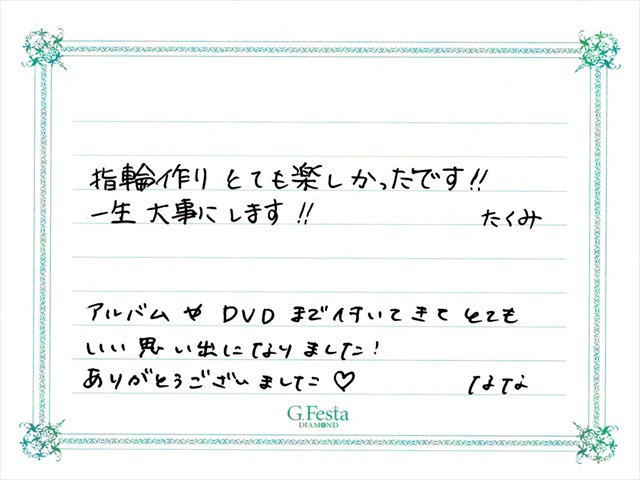 指輪作り とても楽しかったです!!
一生 大事にします!! たくみ
アルバムや DVD まで付いてきて とても
いい思い出になりました!
ありがとうございました♡ なな
G.Festa
DIAMOND